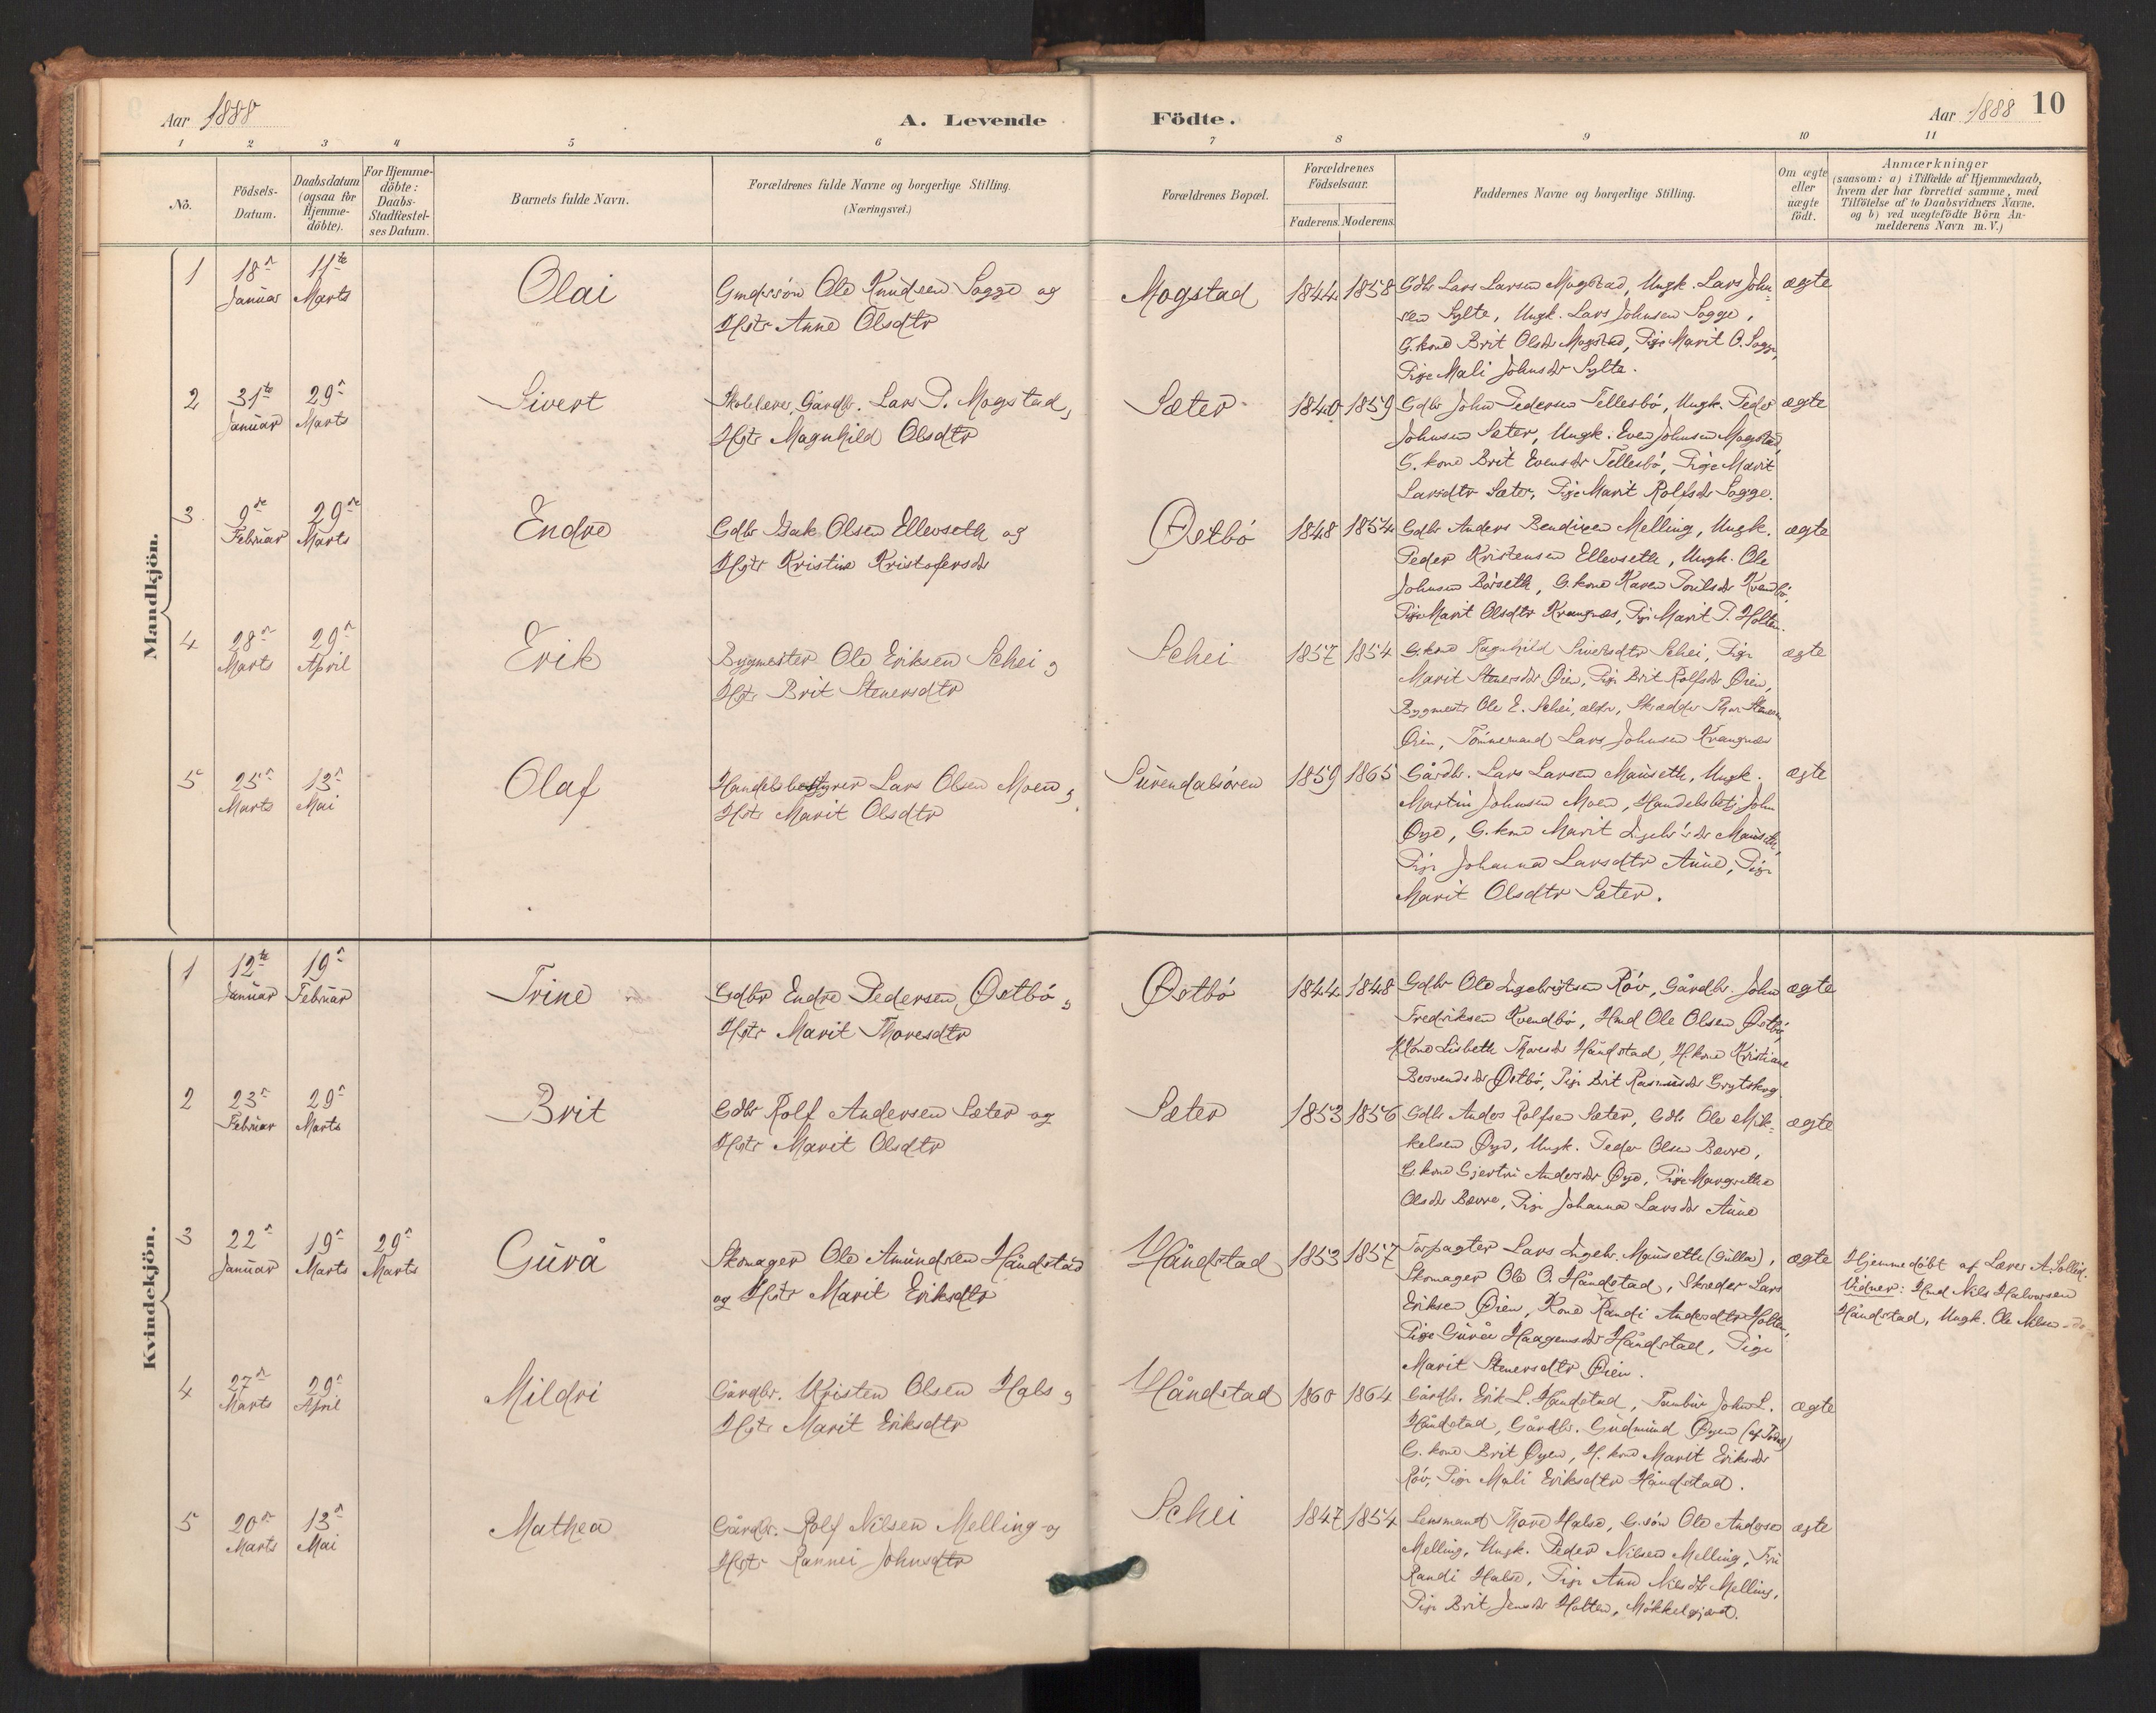 Aar 1888
A. Levende Födte.
Aar 1888
10
1 2 3 4 5 6 7 8 9 10 11
No.
Födsels-
Datum.
Daabsdatum
(ogsaa for
Hjemme-
döbte).
For Hjemme-
döbte:
Daabs-
Stadfæstel-
ses Datum.
Barnets fulde Navn.
Forældrenes fulde Navne og borgerlige Stilling.
(Næringsvei.)
Forældrenes Bopæl.
Forældrenes
Födselsaar.
Faderens. Moderens.
Faddernes Navne og borgerlige Stilling.
Om ægte
eller
uægte
födt.
Anmærkninger
(saasom: a) i Tilfælde af Hjemmedaab,
hvem der har forrettet samme, med
Tilföielse af to Daabsvidners Navne.
og b) ved uægtefödte Börn An-
melderens Navn m. V.)
Mandkjön.
1
18de
Januar
11te
Marts
Olai
Gmdssön Ole Knudsen Sogge og
Hstr Anne Olsdtr
Mogstad
1844
1858
Gdbr Lars Larsen Mogstad, Ungk. Lars John-
sen Sylte, Ungk. Lars Johnsen Sogge,
G.kone Brit Olsdr Mogstad, Pige Marit O. Sogge,
Pige Mali Johnsdr Sylte.
ægte
2
31te
Januar
29de
Marts
Sivert
Skolelærer, Gårdbr. Lars P. Mogstad,
Hstr Magnhild Olsdtr
Sæter
1840
1859
Gdbr John Pedersen Tellesbö, Ungk. Peder
Johnsen Sæter, Ungk. Even Johnsen Mogstad,
G. kone Brit Evensdr Tellesbö, Pige Marit
Larsdtr Sæter, Pige Marit Rolfsdr Sogge.
ægte
3
9de
Februar
29de
Marts
Endre
Gdbr Isak Olsen Ellevseth og
Hstr Kristine Kristofersdr
Østbö
1848
1854
Gdbr Anders Bendixen Melling, Ungk.
Peder Kristensen Ellevseth, Ungk. Ole
Johnsen Börseth, G.kone Karen Poulsdr Kvendbö,
Pige Marit Olsdtr Krangnæs, Pige Marit P. Holten.
ægte
4
28de
Marts
29de
April
Erik
Bygmester Ole Eriksen Schei og
Hstr Brit Stenersdtr
Schei
1857
1854
G.kone Ragnhild Siversdtr Schei, Pige
Marit Stenersdtr Øien, Pige Brit Rolfsdr Øien,
Bygmester Ole E. Schei, ældr, Skrædder Thor Stenersen
Øien, Tömmermand Lars Johnsen Krangnæs
ægte
5
25de
Marts
13de
Mai
Olaf
Handelsbestyrer Lars Olsen Moen og
Hstr Marit Olsdtr
Surendalsören
1859
1865
Gårdbr. Lars Larsen Mauseth, Ungk.
Martin Johnsen Moen, Handelsbetj. John
Øye, G.kone Marit Ingebr'sdr Mauseth,
Pige Johanna Larsdtr Aune, Pige
Marit Olsdtr Sæter.
ægte
Kvindekjön.
1
12te
Januar
19de
Februar
Trine
Gdbr Endre Pedersen Østbö og
Hstr Marit Thoresdtr
Østbö
1844
1848
Gdbr Ole Ingebrigtsen Röv, Gårdbr. John
Fredriksen Kvendbö, Hmd Ole Olsen Østbö,
H.kone Lisbeth Thoresdr Håndstad, H.kone Kristiane
Østbö, Pige Brit Rasmusdr Grytskog
ægte
2
23de
Februar
29de
Marts
Brit
Gdbr Rolf Andersen Sæter og
Hstr Marit Olsdtr
Sæter
1853
1856
Gdbr Anders Rolfsen Sæter, Gdbr Ole Mik-
kelsen Øye, Ungk. Peder Olsen Bævre,
G.kone Gjertru Andersdr Øye, Pige Margrethe
Olsdr Bævre, Pige Johanna Larsdr Aune
ægte
3
22de
Januar
19de
Marts
29de
Marts
Gurå
Skomager Ole Amundsen Håndstad
og Hstr Marit Eriksdtr
Håndstad
1853
1857
Forpagter Lars Ingebr. Mauseth (Gulla),
Skomager Ole O. Håndstad, Skræder Lars
Eriksen Øien, Kone Randi Andersdtr Holten,
Pige Gurå Haagensdr Håndstad, Pige
Marit Stenersdtr Øien.
ægte
Hjemmedöbt af Lærer A. Sollid.
Vidner: Hmd Nils Halvorsen
Håndstad, Ungk. Ole Nilsen do
4
27de
Marts
29de
April
Mildri
Gårdbr. Kristen Olsen Hals og
Hstr Marit Eriksdtr
Håndstad
1860
1864
Gårdbr. Erik L. Håndstad, Tambur John L.
Håndstad, Gårdbr. Gudmund Øyen
G. kone Brit Øyen, H. kone Marit Eriksdr
Röv, Pige Mali Eriksdtr Håndstad.
ægte
5
20de
Marts
13de
Mai
Mathea
Gårdbr. Rolf Nilsen Melling og
Hstr Rannei Johnsdtr
Schei
1847
1854
Lensmand Thore Halse, G.sön Ole Andersen
Melling, Ungk. Peder Nilsen Melling, Fru
Randi Halse, Pige Ane Nilsdtr Melling,
Pige Brit Jensdr Holten, Mökkelgjerd.
ægte